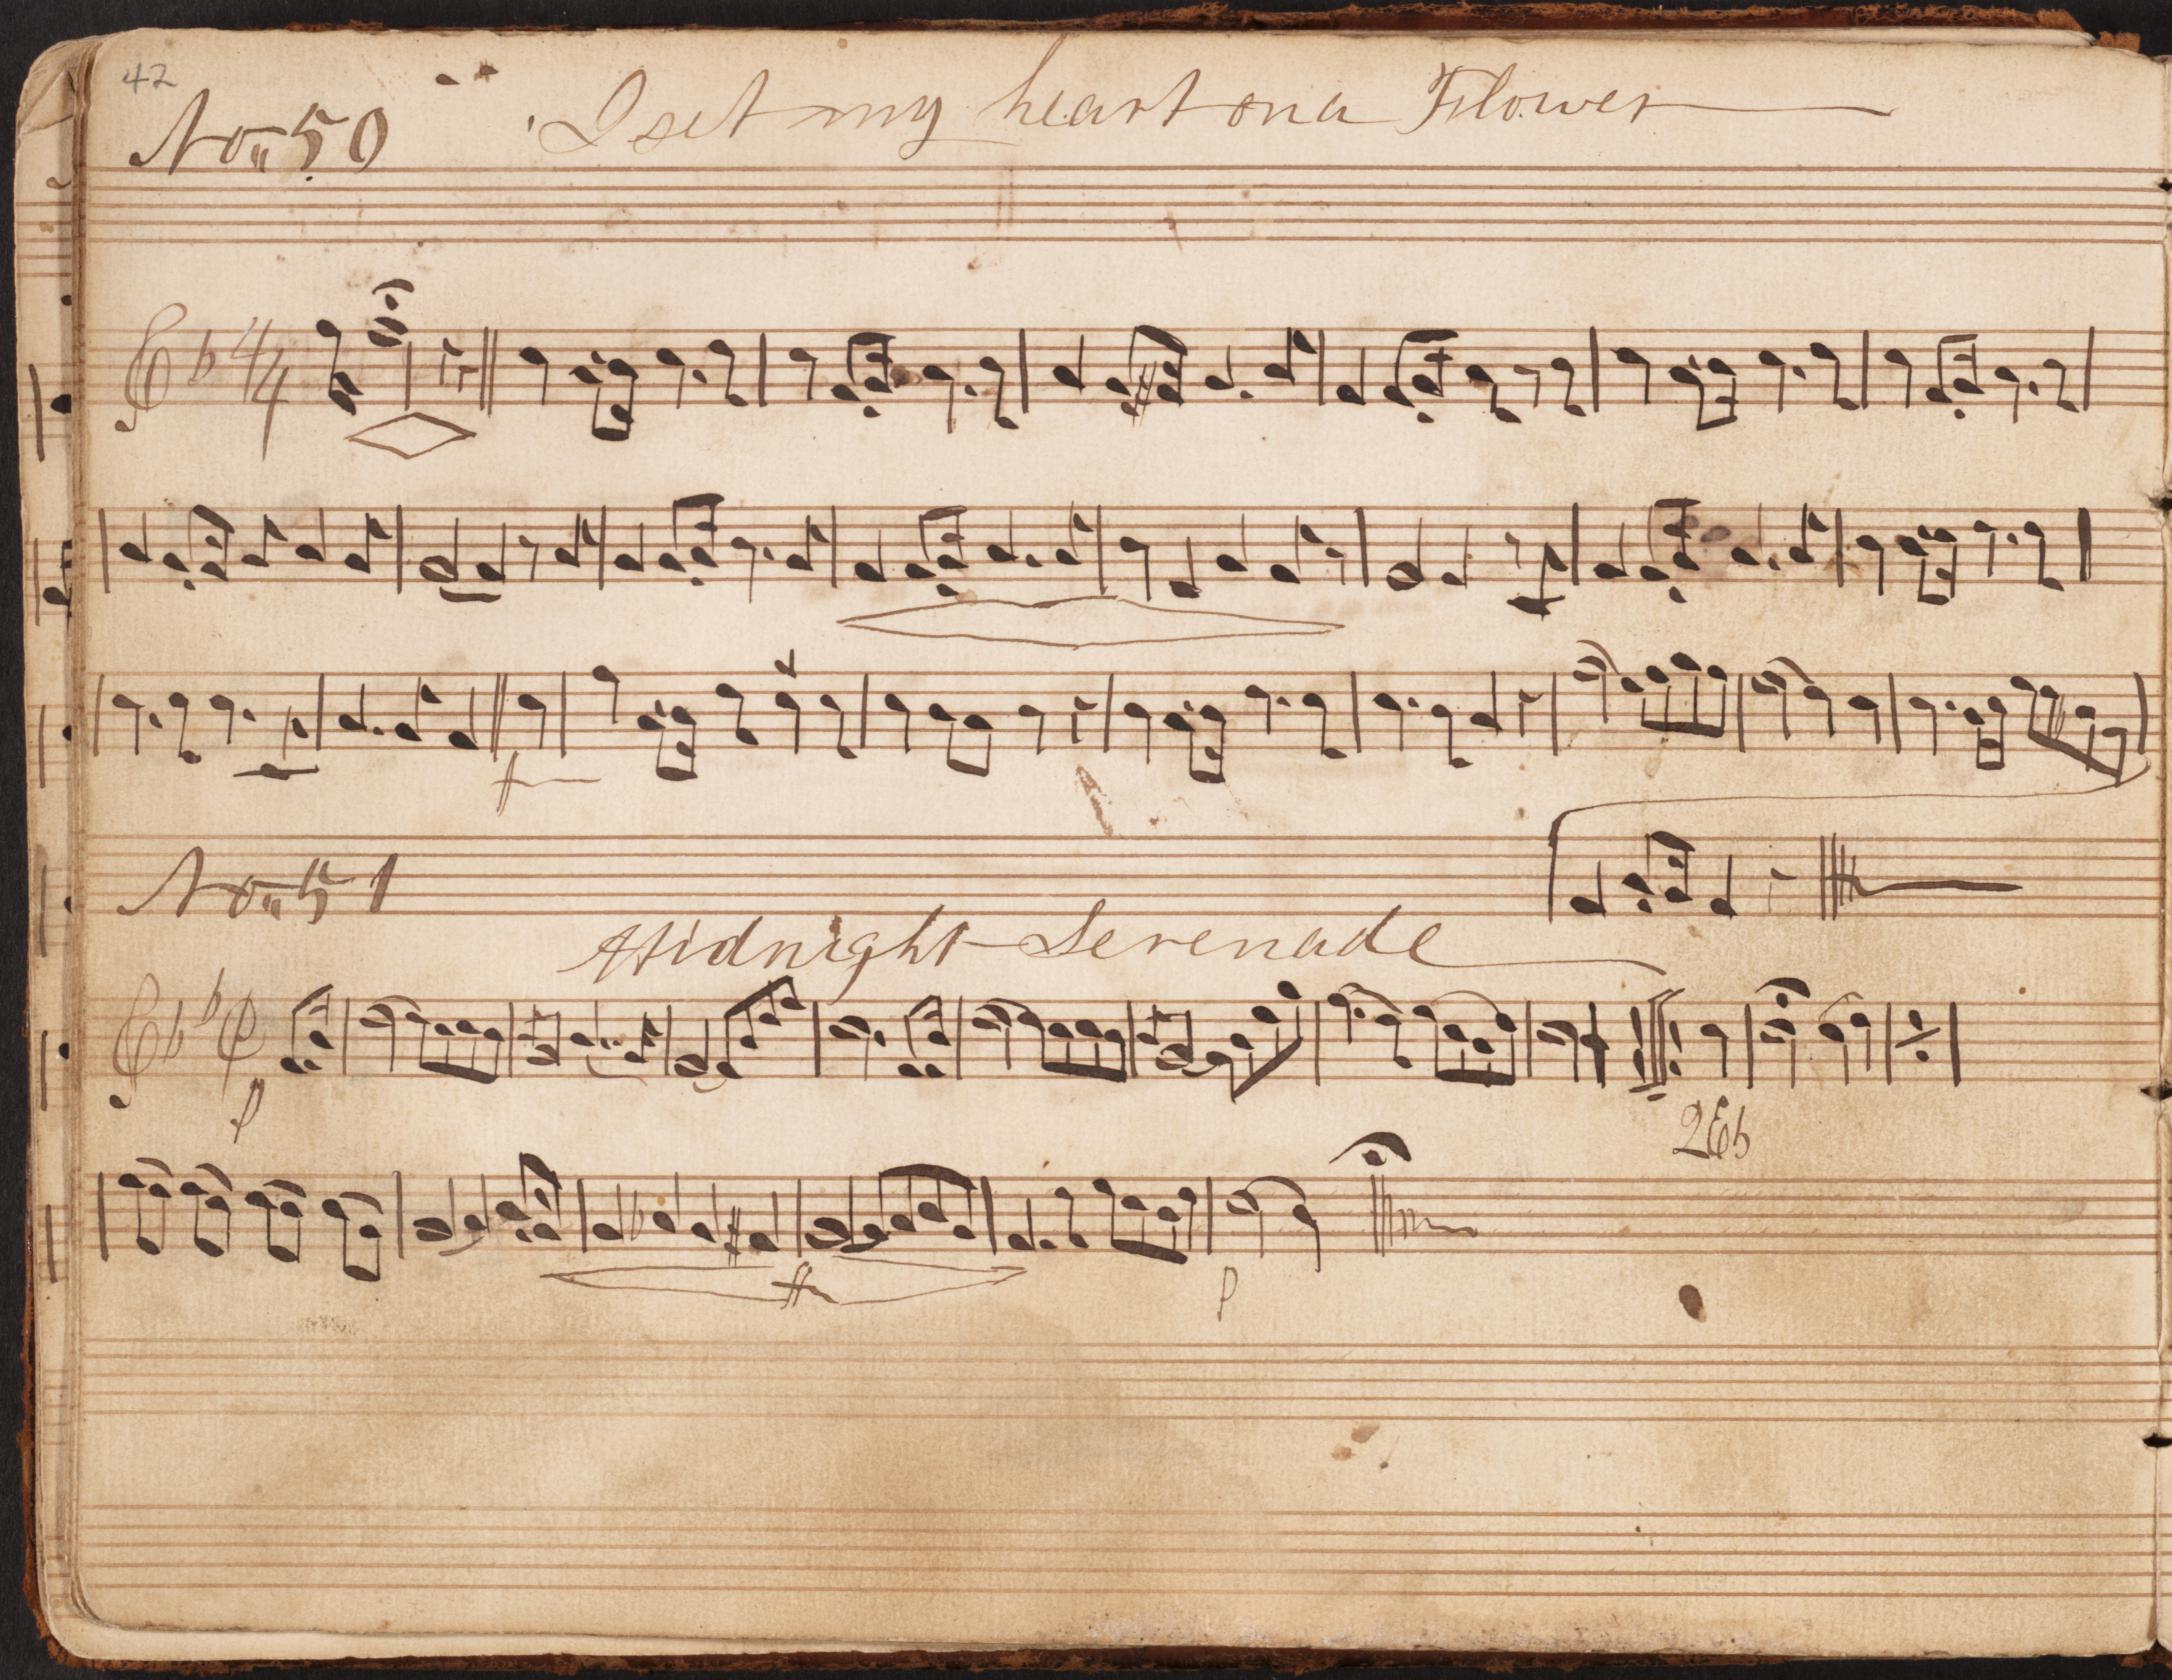 42
No 50 I set my heart on a Flower
4/4
No 51
Midnight Serenade
p
p